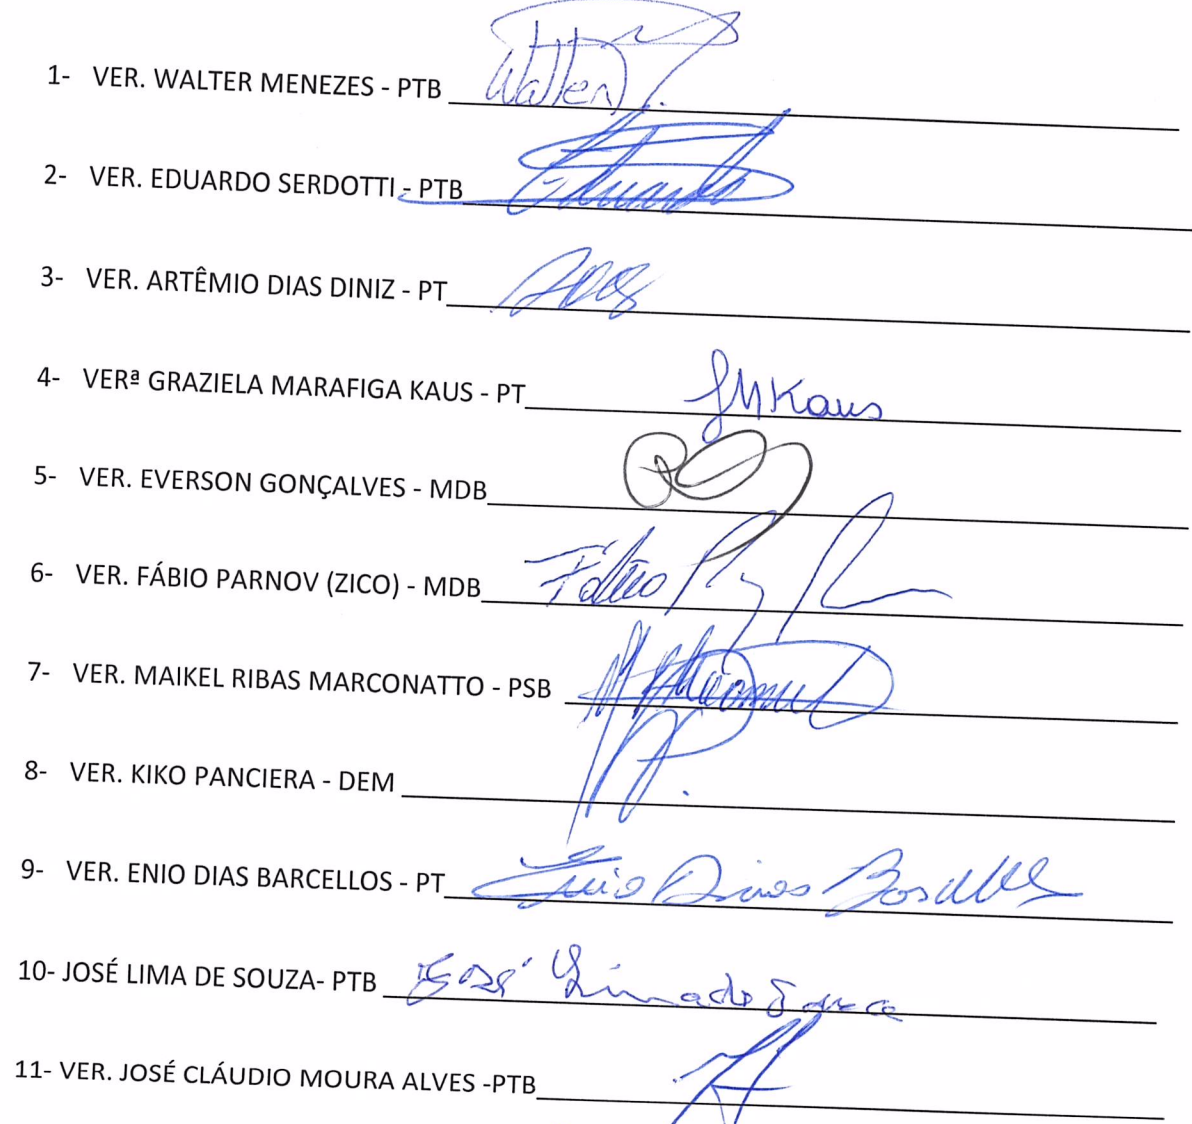 1- VER. WALTER MENEZES - PTB Walter
2- VER. EDUARDO SERDOTTI - PTB Eduardo
3- VER. ARTÊMIO DIAS DINIZ - PT
4- VERª GRAZIELA MARAFIGA KAUS - PT GMKaus
5- VER. EVERSON GONÇALVES - MDB
6- VER. FÁBIO PARNOV (ZICO) - MDB Fábio
7- VER. MAIKEL RIBAS MARCONATTO - PSB
8- VER. KIKO PANCIERA - DEM
9- VER. ENIO DIAS BARCELLOS - PT Enio Dias Barcellos
10- JOSÉ LIMA DE SOUZA- PTB José Lima de Souza
11- VER. JOSÉ CLÁUDIO MOURA ALVES -PTB